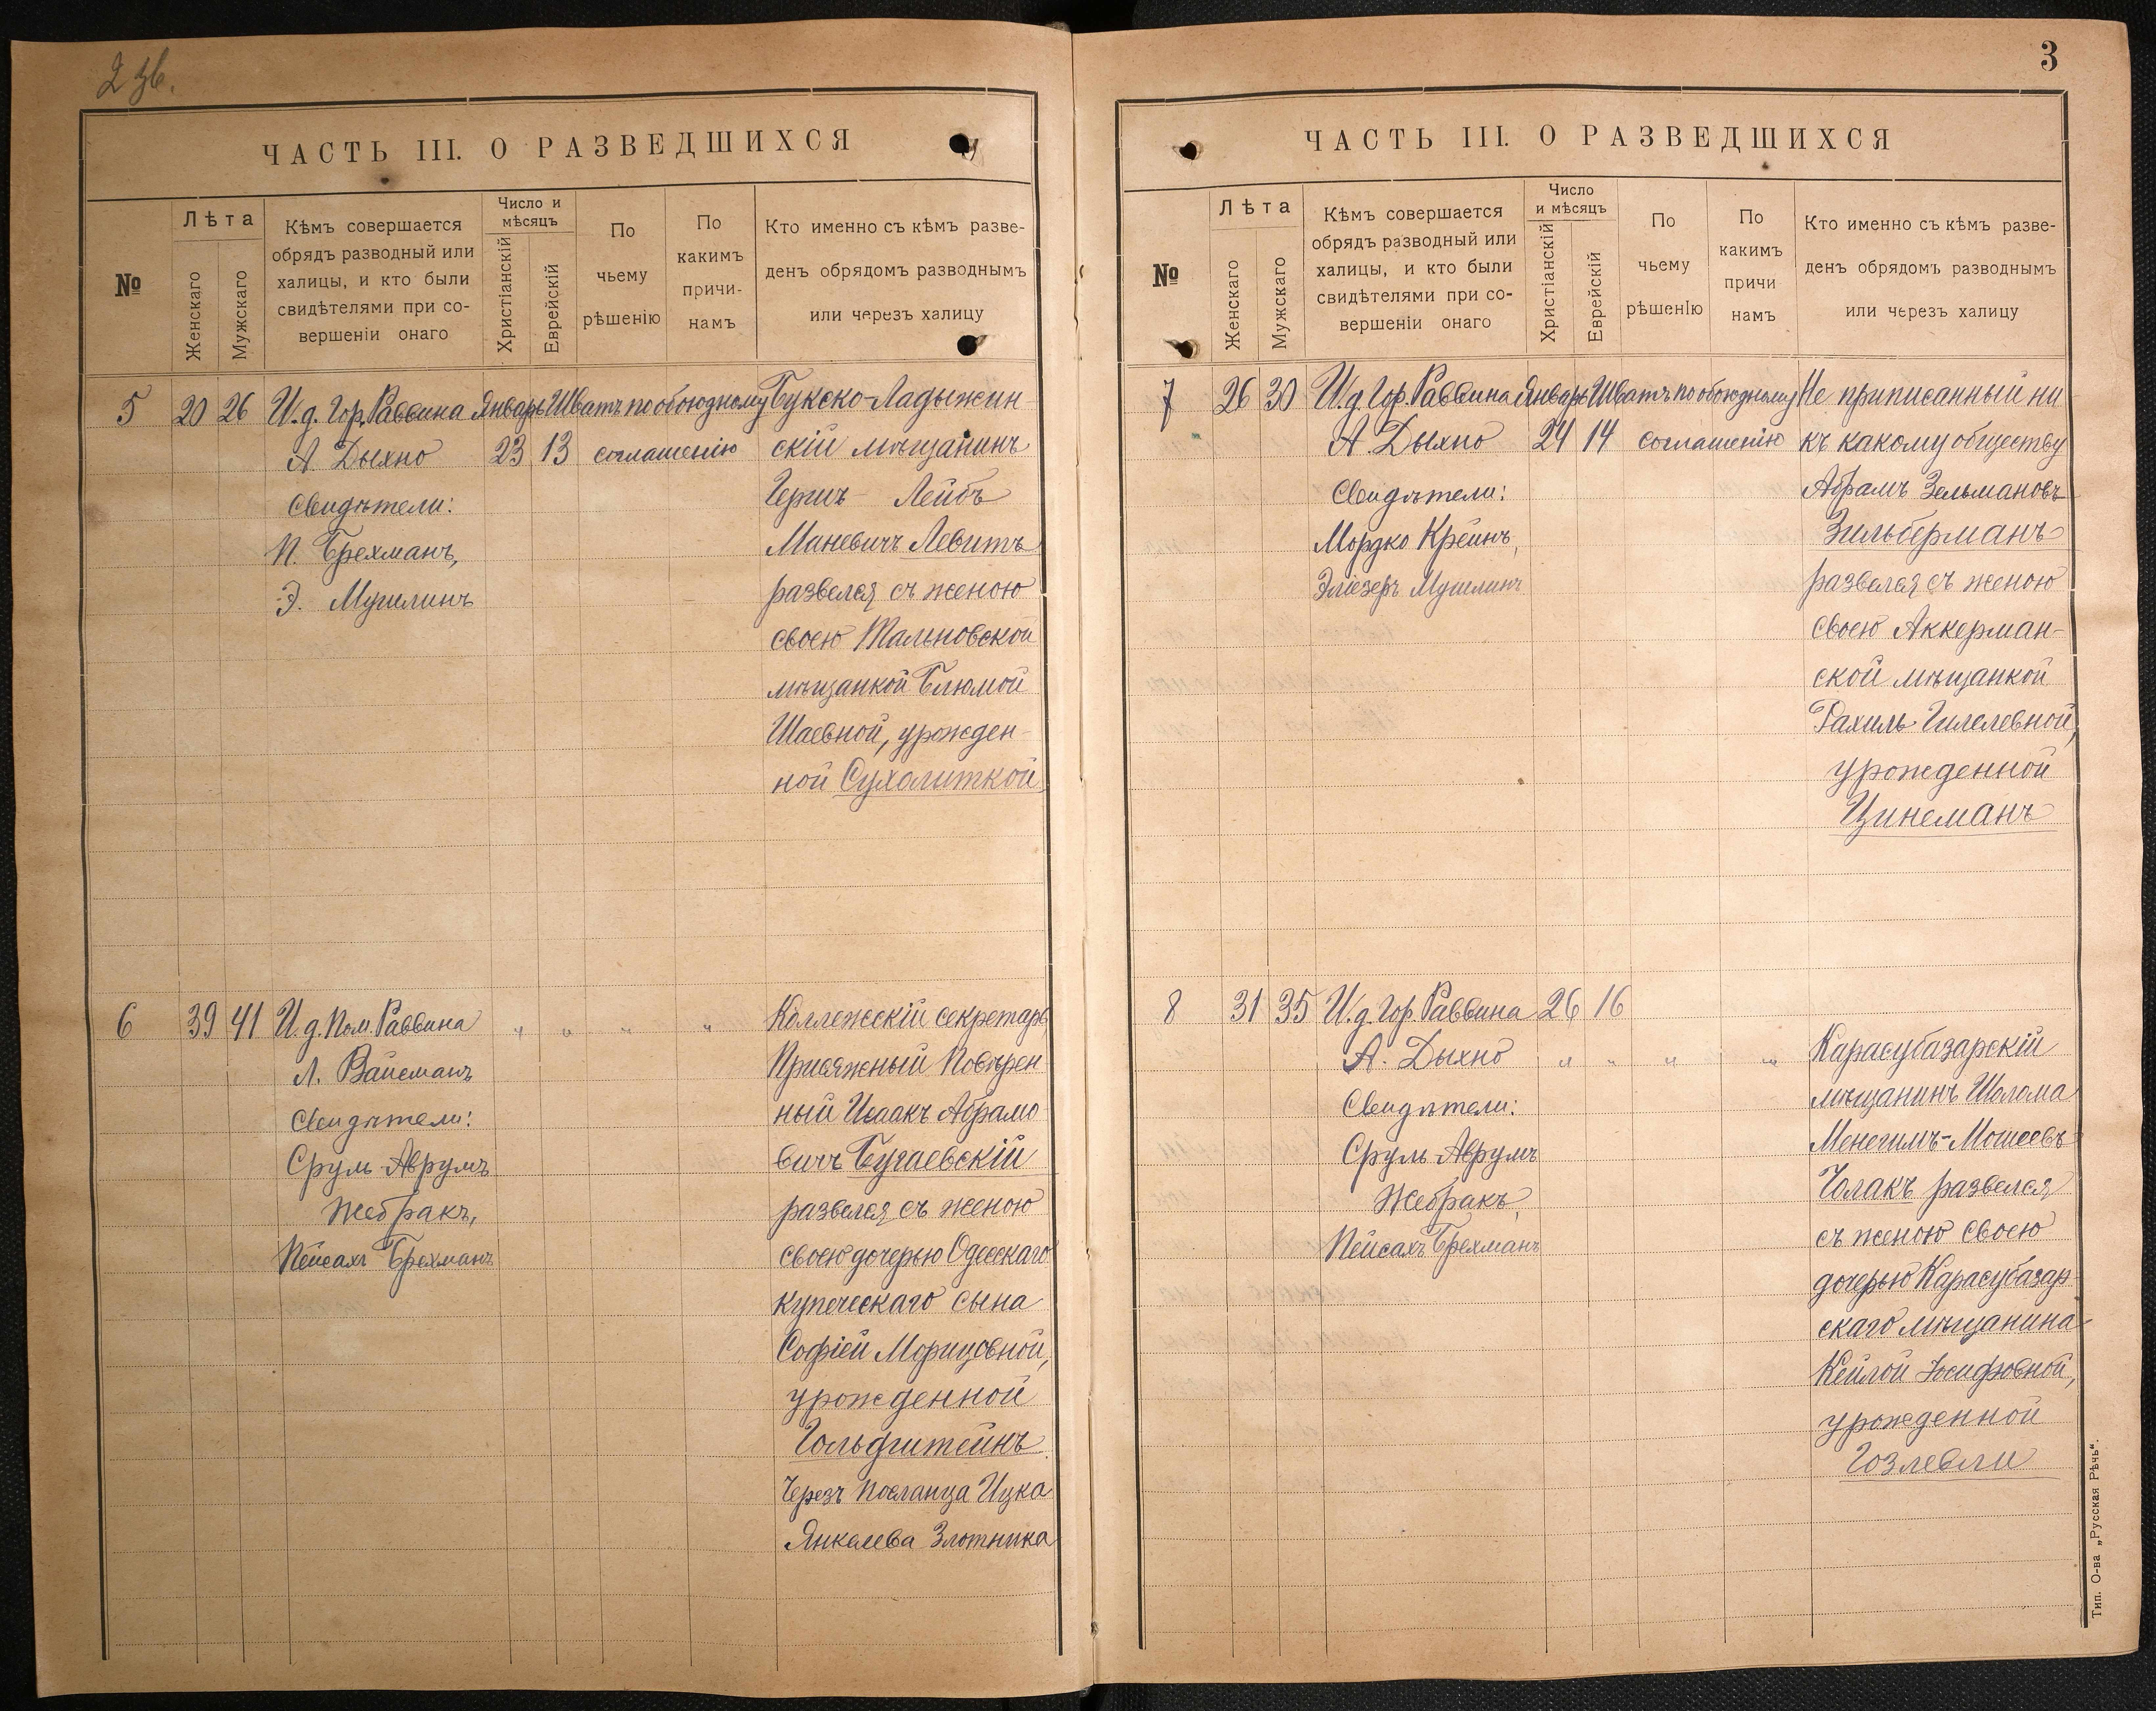 2 зв.
ЧАСТЬ III. О РАЗВЕДШИХСЯ
№
Лѣта
Женскаго
Мужскаго
Кѣмъ совершается
обрядъ разводный или
халицы, и кто были
свидѣтелями при со-
вершеніи онаго
Число и
мѣсяцъ
Христіанскій
Еврейскій
По
чьему
рѣшенію
По
какимъ
причи-
намъ
Кто именно съ кѣмъ разве-
денъ обрядомъ разводнымъ
или черезъ халицу
5 20 26 И.д. Гор. Раввина Январь Шватъ по обоюдному Букско-Ладыжин
А. Дыхно 23 13 соглашенію скій мѣщанинъ
Свидѣтели: Гершъ - Лейбъ
П. Брехманъ, Маневичъ Левитъ
Э. Мушлинъ развелся съ женою
своею Тальновской
мѣщанкой Блюмой
Шаевной, урожден-
ной Сухолиткой
6 39 41 И.д. Пом. Раввина " " " " Коллежскій секретарь,
Л. Вайсманъ Присяжный Повѣрен
Свидѣтели: ный Исаакъ Абрамо
Сруль-Аврумъ вичъ Бугаевскій
Жебракъ, развелся съ женою
Пейсахъ Брехманъ своею дочерью Одесскаго
купеческаго сына
Софіей Морицовной,
урожденной
Гольдштейнъ
Черезъ посланца Ицка
Янкелева Злотника
3
ЧАСТЬ III. О РАЗВЕДШИХСЯ
№
Лѣта
Женскаго
Мужскаго
Кѣмъ совершается
обрядъ разводный или
халицы, и кто были
свидѣтелями при со-
вершеніи онаго
Число
и мѣсяцъ
Христіанскій
Еврейскій
По
чьему
рѣшенІю
По
какимъ
причи
намъ
Кто именно съ кѣмъ разве-
денъ обрядомъ разводнымъ
или черезъ халицу
7 26 30 И.д. Гор. Раввина Январь Шватъ по обоюдному Не приписанный ни
А. Дыхно 24 14 соглашенію къ какому обществу
Свидѣтели: Абрамъ Зельмановъ
Мордко Крейнъ, Зильберманъ
Эліезеръ Мушлинъ развелся съ женою
своею Аккерман-
ской мѣщанкой
Рахиль Гилелевной,
урожденной
Цинеманъ
8 31 35 И.д. Гор. Раввина 26 16
А. Дыхно " " " " Карасубазарскій
Свидѣтели: мѣщанинъ Шолома
Сруль-Аврумъ Менегимъ-Мошеевъ
Жебракъ, Чолакъ развелся
Пейсахъ Брехманъ съ женою своею
дочерью Карасубазар
скаго мѣщанина
Кейлой Іосифовной,
урожденной
Гозлевли
Тип. О-ва „Русская Рѣчь“.